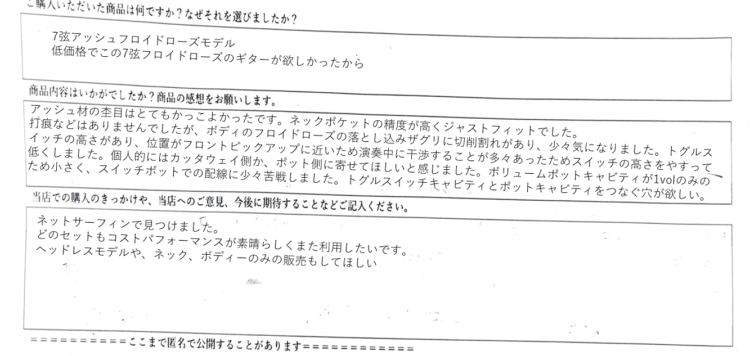 ご購入いただいた商品は何ですか？なぜそれを選びましたか？
7弦アッシュフロイドローズモデル
低価格でこの7弦フロイドローズのギターが欲しかったから
商品内容はいかがでしたか？商品の感想をお願いします。
アッシュ材の杢目はとてもかっこよかったです。ネックポケットの精度が高くジャストフィットでした。
打痕などはありませんでしたが、ボディのフロイドローズの落とし込みザグリに切削割れがあり、少々気になりました。トグルス
イッチの高さがあり、位置がフロントピックアップに近いため演奏中に干渉することが多々あったためスイッチの高さをやすって
低くしました。個人的にはカッタウェイ側か、ポット側に寄せてほしいと感じました。ボリュームポットキャビティが1volのみの
ため小さく、スイッチポットでの配線に少々苦戦しました。トグルスイッチキャビティとポットキャビティをつなぐ穴が欲しい。
当店での購入のきっかけや、当店へのご意見、今後に期待することなどご記入ください。
ネットサーフィンで見つけました。
どのセットもコストパフォーマンスが素晴らしくまた利用したいです。
ヘッドレスモデルや、ネック、ボディーのみの販売もしてほしい
＝＝＝＝＝＝＝＝＝＝ここまで匿名で公開することがあります＝＝＝＝＝＝＝＝＝＝＝＝